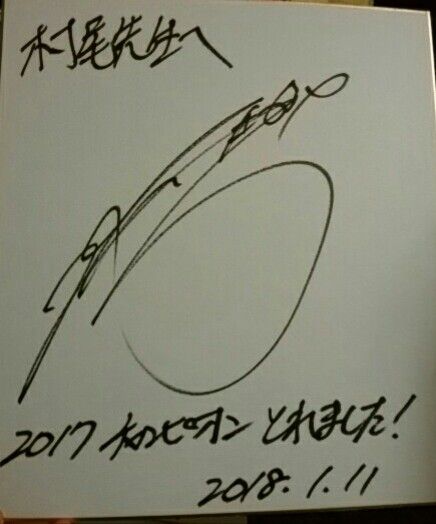 村尾先生へ
2017 チャンピオン とれました!
2018.1.11